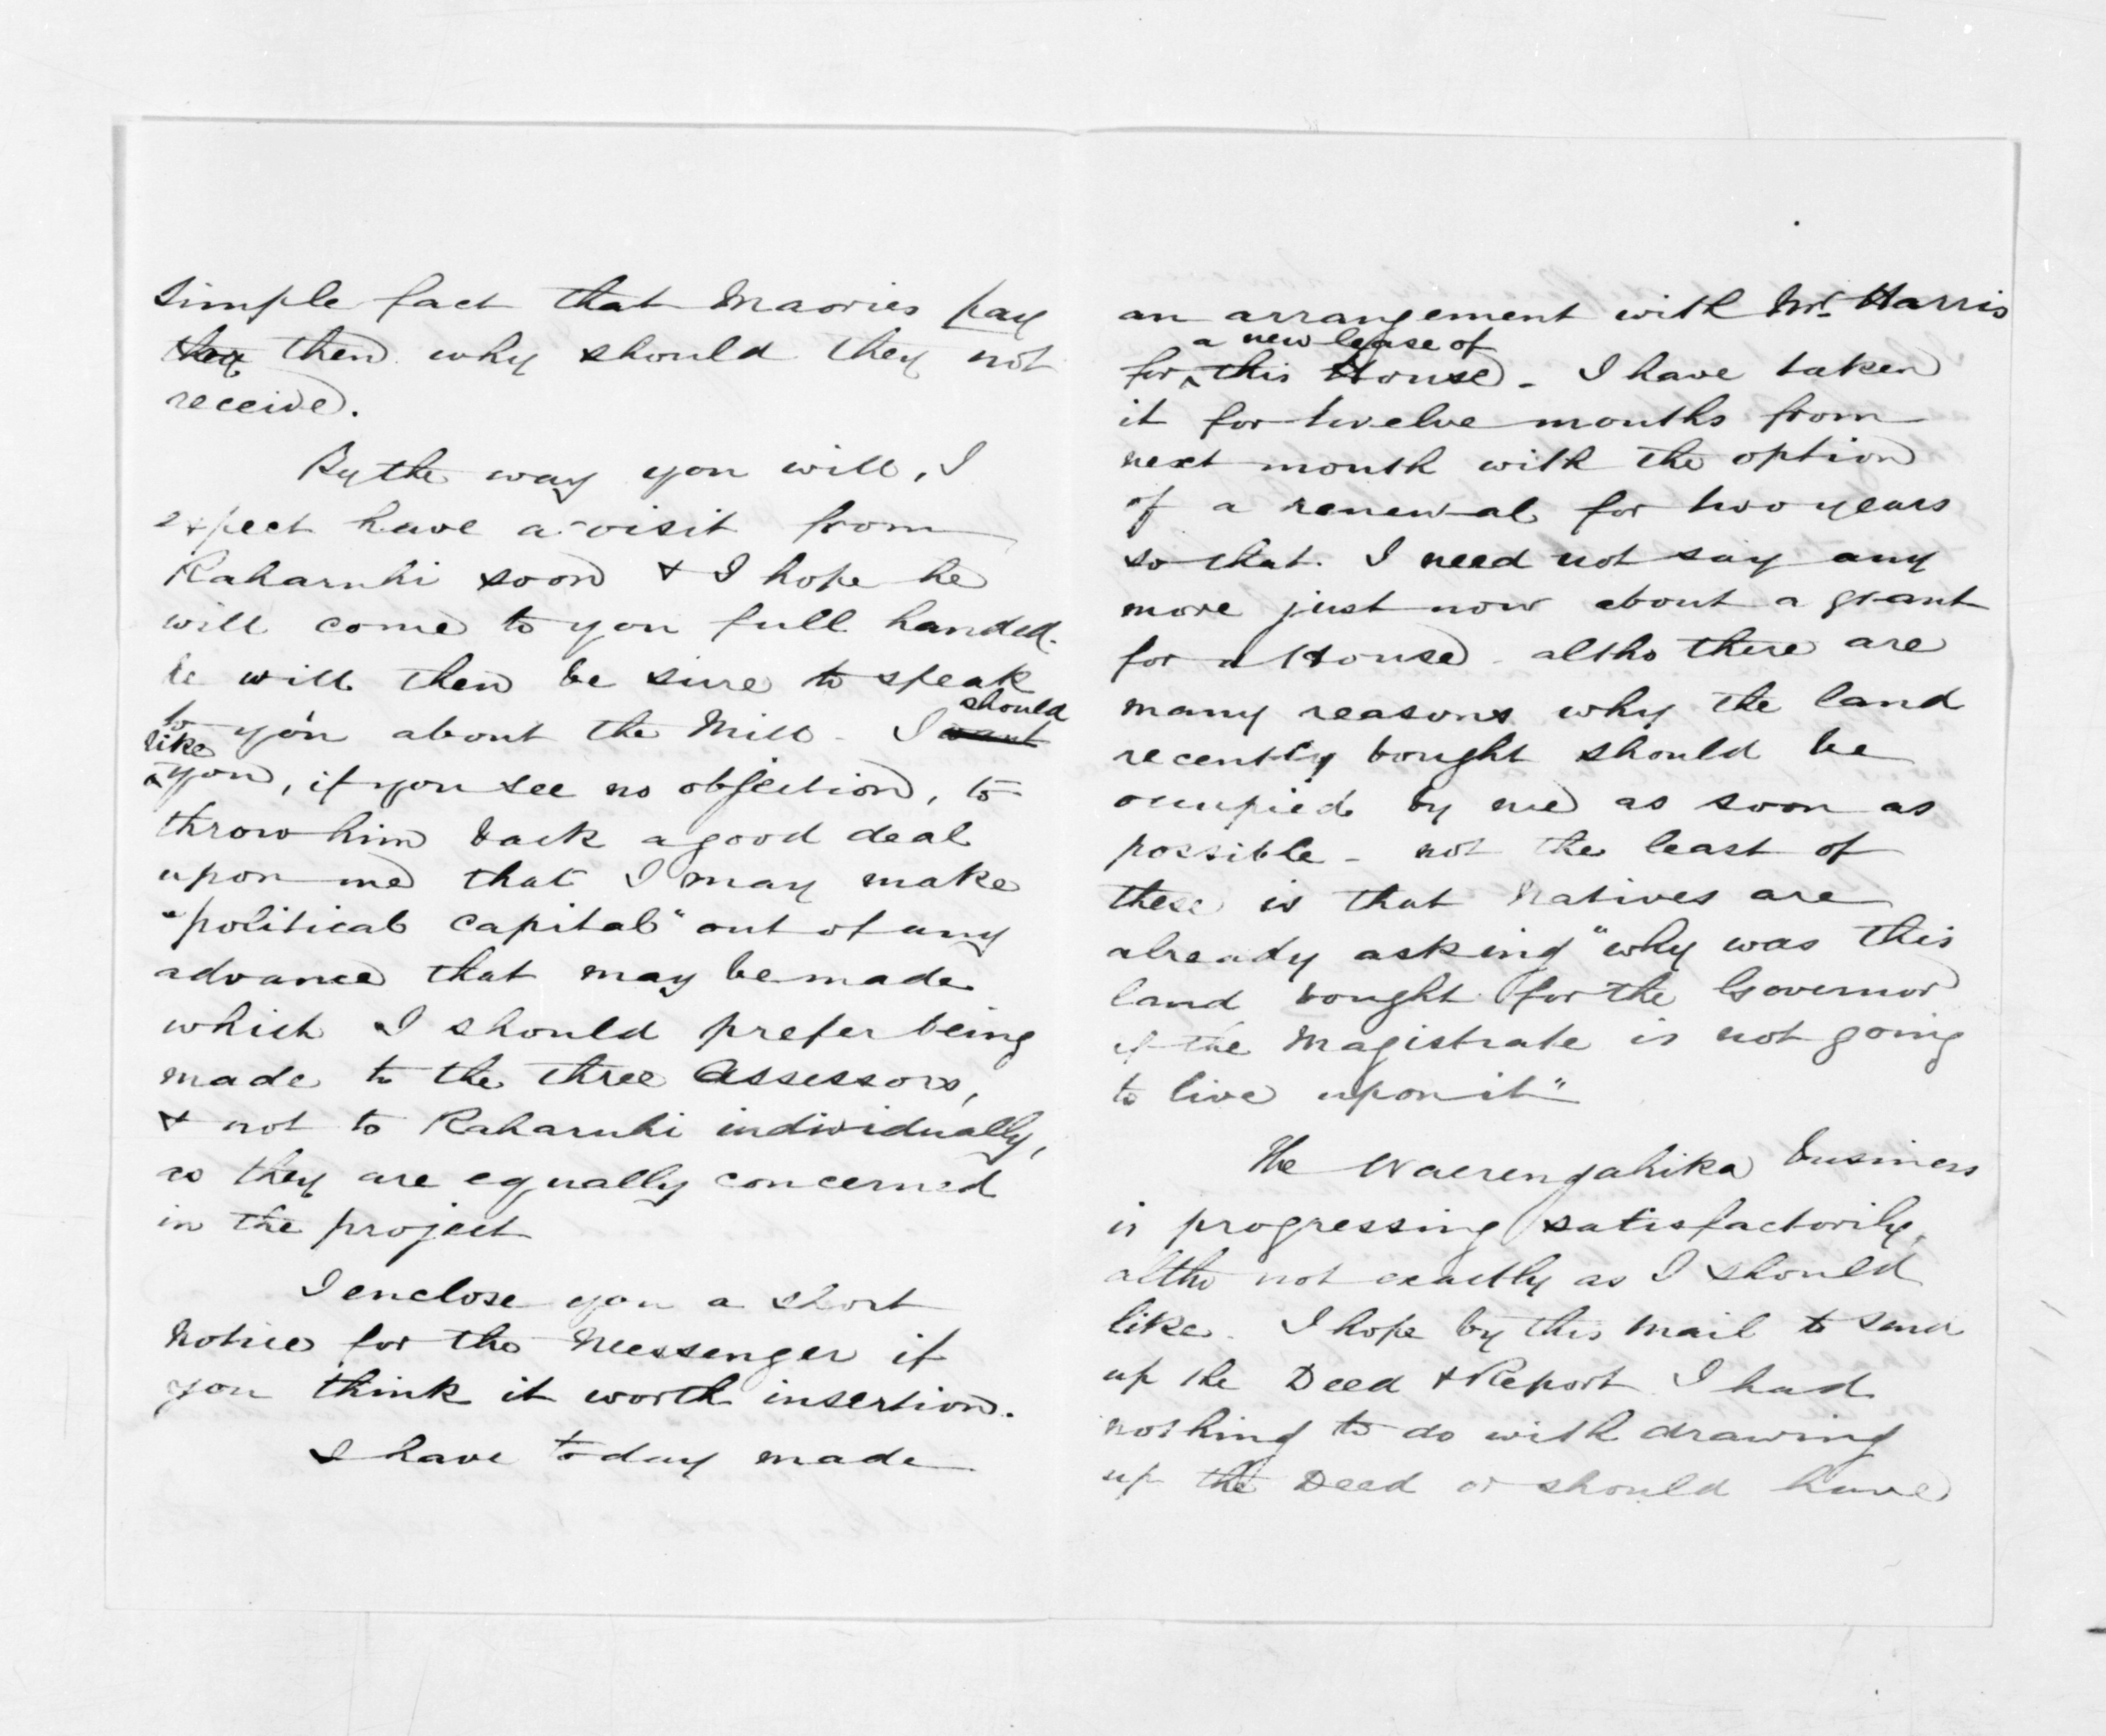 simple fact that Maories pay
they then why should they not
receive.
By the way you will, I
expect have a visit from
Raharuhi soon & I hope he
will come to you full handed.
he will then be sure to speak
to you about the Mill - I want should
like you, if you see no objection, to
throw him back a good deal
upon me that I may make
"political capital" out of any
advance that may be made
which I should prefer being
made to the three Assessors,
& not to Raharuhi individually,
as they are equally concerned
in the project
I enclose you a short
notice for the Messenger if
you think it worth insertion.
I have today made
an arrangement with Mr. Harris
a new lease of
for this House - I have taken
it for twelve months from
next month with the option
of a renewal for two years
so that I need not say any
more just now about a grant
for a House - altho there are
many reasons why the land
recently bought should be
occupied by me as soon as
possible - not the least of
these is that Natives are
already asking "why was this
land bought for the Governor
if the Magistrate is not going
to live upon it"
The Waerengahika business
is progressing satisfactorily,
altho not exactly as I should
like. I hope by this mail to send
up the Deed & Report I had
nothing to do with drawing
up the Deed or should have